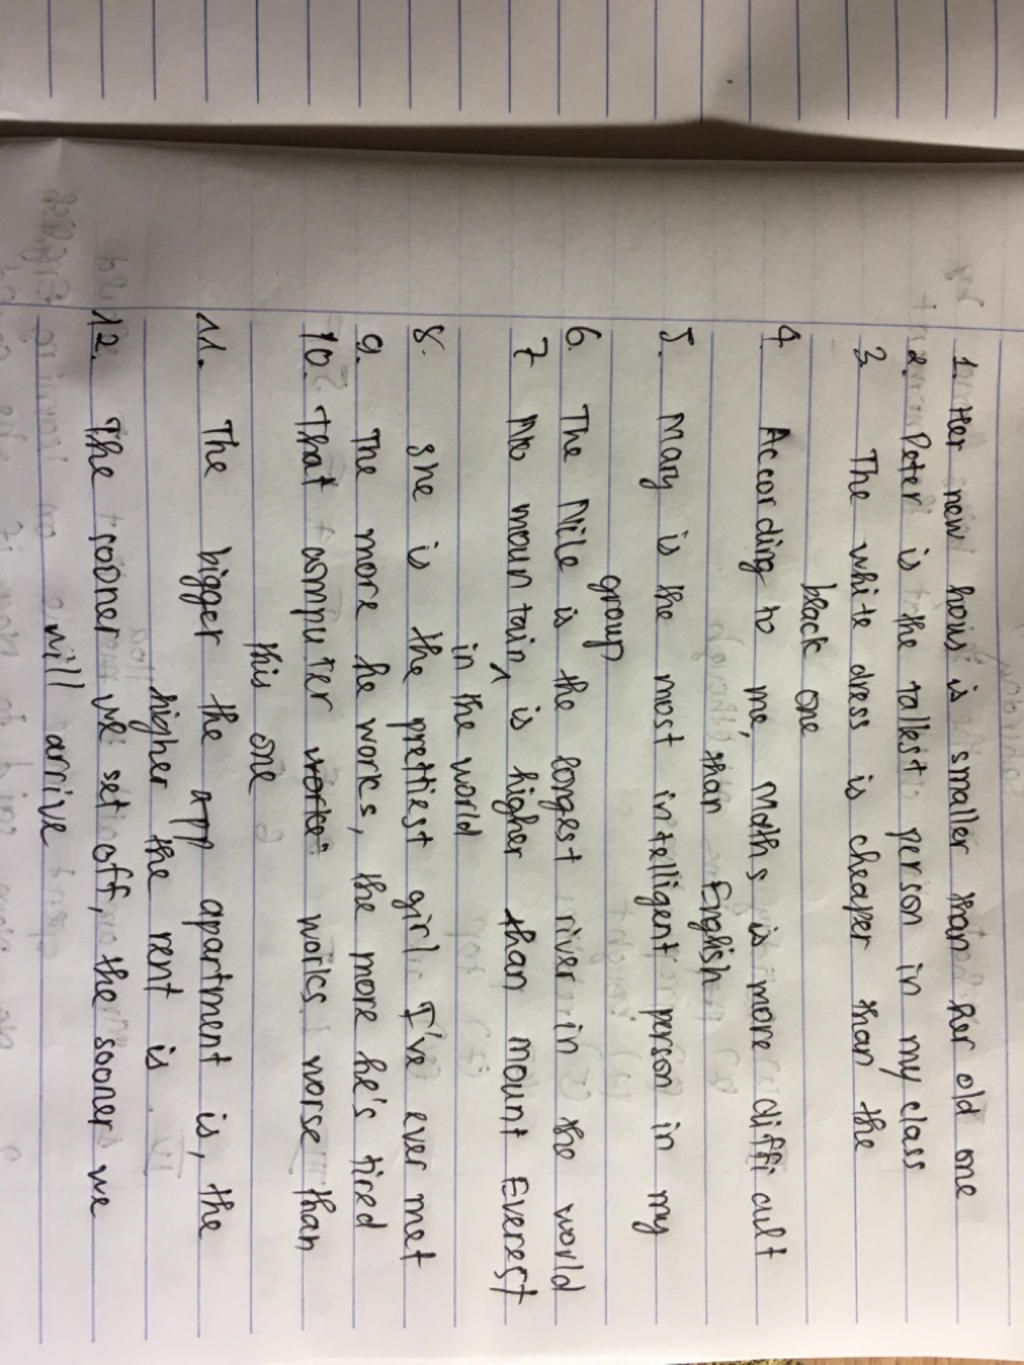 1. Her new hous is smaller than her old one
2. Peter is the tallest person in my class
3. The white dress is cheaper than the
black one
4 According to me, Maths is more difficult
than English
5. Mary is the most intelligent person in my
group
6. The Nile is the longest river in the world
7 No mountain is higher than mount Everest
in the world
8. she is the prettiest girl I've ever met
9. The more he works, the more he's tired
10. That computer works worse than
this one
11. The bigger the app apartment is, the
higher the rent is
12. The sooner we set off, the sooner we
will arrive